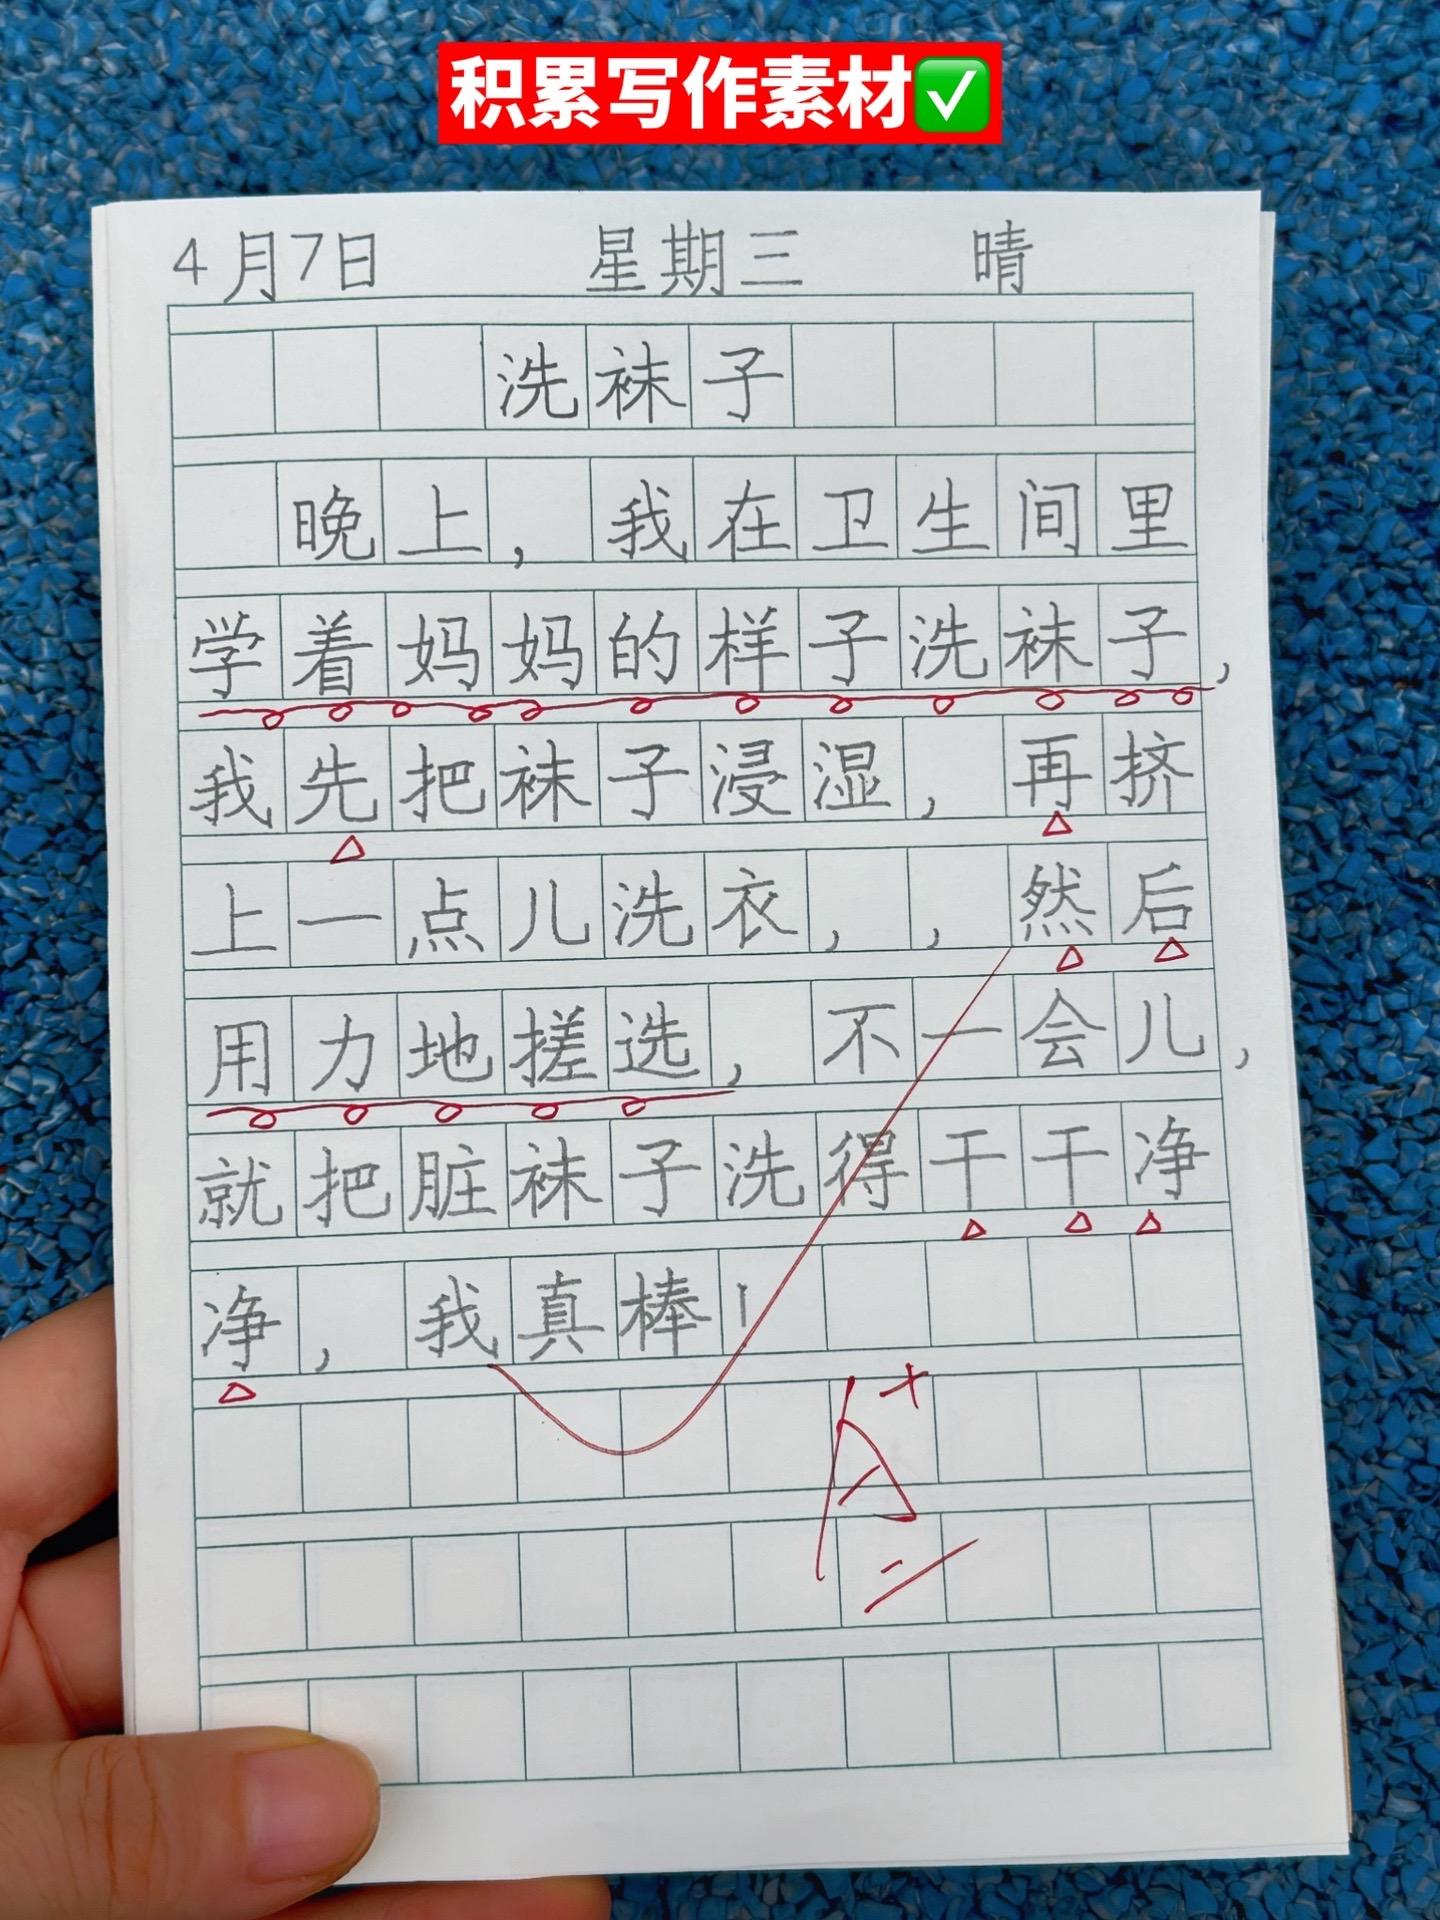 积累写作素材✅
4月7日 星期三 晴
洗袜子
晚上，我在卫生间里
学着妈妈的样子洗袜子，
我先把袜子浸湿，再挤
上一点儿洗衣，，然后
用力地搓选，不一会儿，
就把脏袜子洗得干干净
净，我真棒！
A+